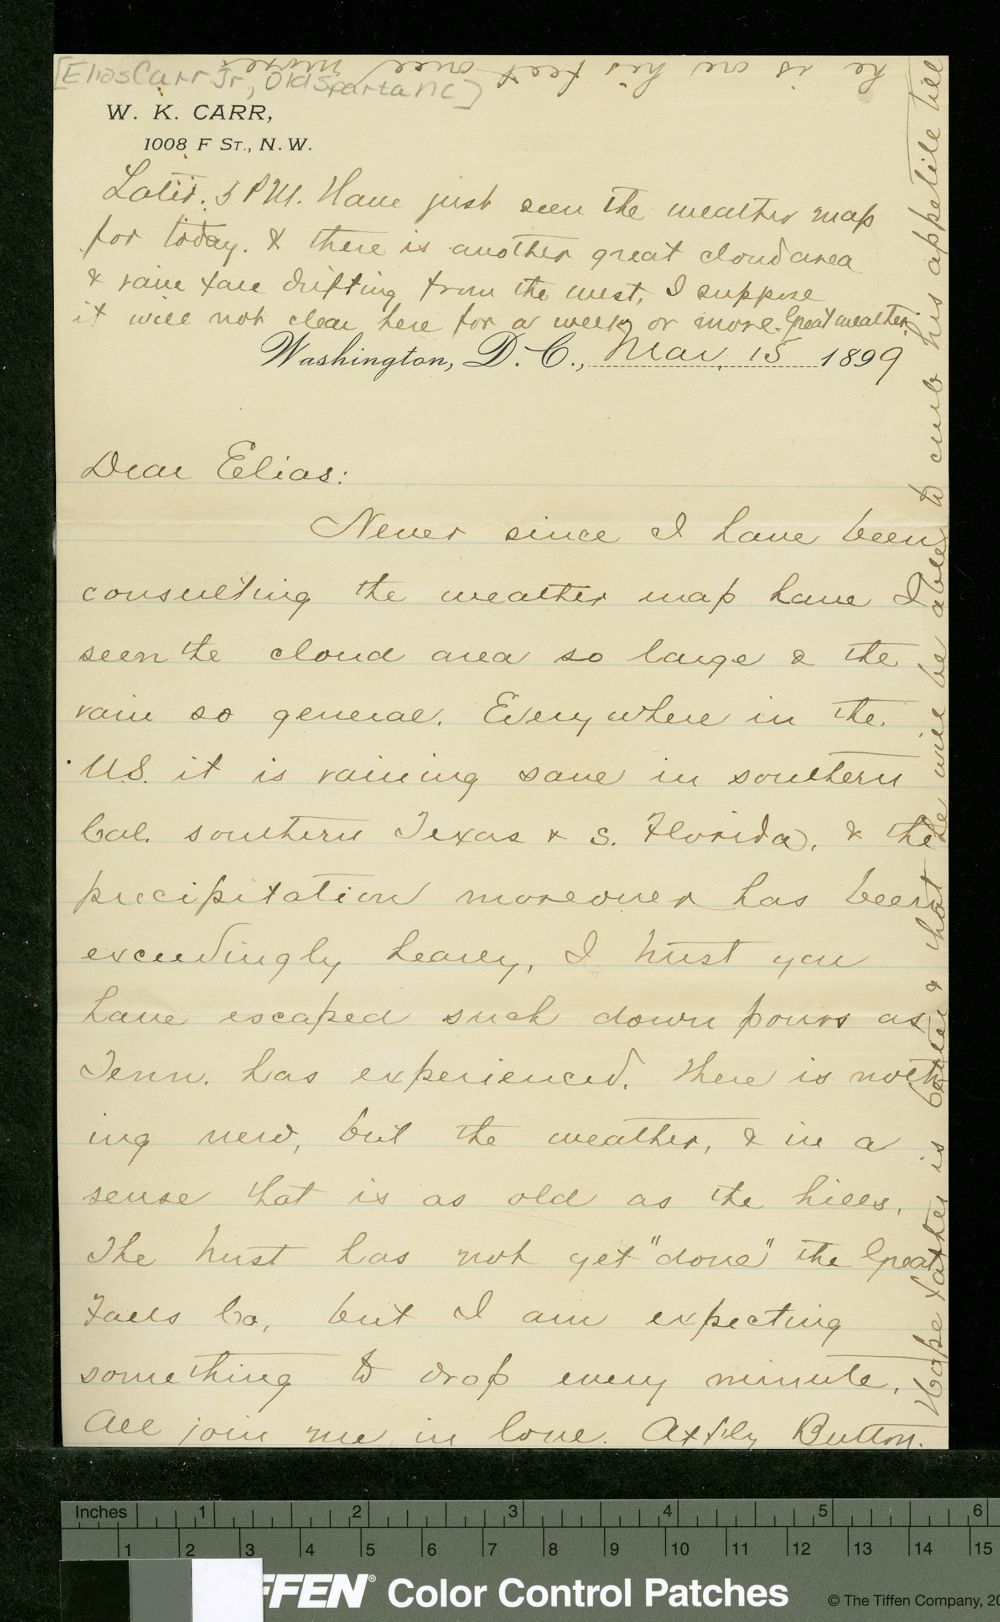 [Elias Carr Jr, Old Sparta NC]
W. K. CARR,
1008 F ST., N. W.
Later. 5 P.M. Have just seen the weather map
for today. & there is another great cloud area
& rain fare drifting from the west, I suppose
it will not clear here for a week or more. Great weather.
Washington, D. C., Mar, 15 1899
Dear Elias:
Never since I have been
consulting the weather map have I
seen the cloud area so large & the
rain so general. Everywhere in the
U.S. it is raining save in southern
Cal. southern Texas & S. Florida, & the
precipitation moreover has been
exceedingly heavy, I trust you
have escaped such down pours as
Tenn. has experienced. There is noth
ing new, but the weather, & in a
sense that is as old as the hills.
The trust has not yet "done" the Great
Falls Co, but I am expecting
something to drop every minute.
All join me in love. Aff'ly Button.
Hope father is better & that he will be able to curb his appetite till
he is on his feet once more
Inches 1 2 3 4 5 6
1 2 3 4 5 6 7 8 9 10 11 12 13 14 15
FFEN® Color Control Patches
© The Tiffen Company, 20